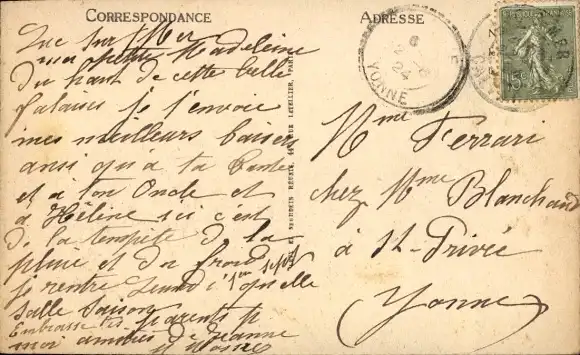 CORRESPONDANCE
Luc sur Mer
ma petite Madeleine
Du haut de cette belle
falaise je t'envoie
mes meilleurs baisers
ansi qu a ta tante
et a ton Oncle et
a Hélène ici c'est
de la tempete de la
pluie et du froid
Je rentre Lundi 1er quelle
salle saison
Embrasse tes parents p
moi amitiés de Jeanne
ADRESSE
YONNE
24
15c
Mme Ferrari
chez Mme Blanchard
à St-Privé
Yonne